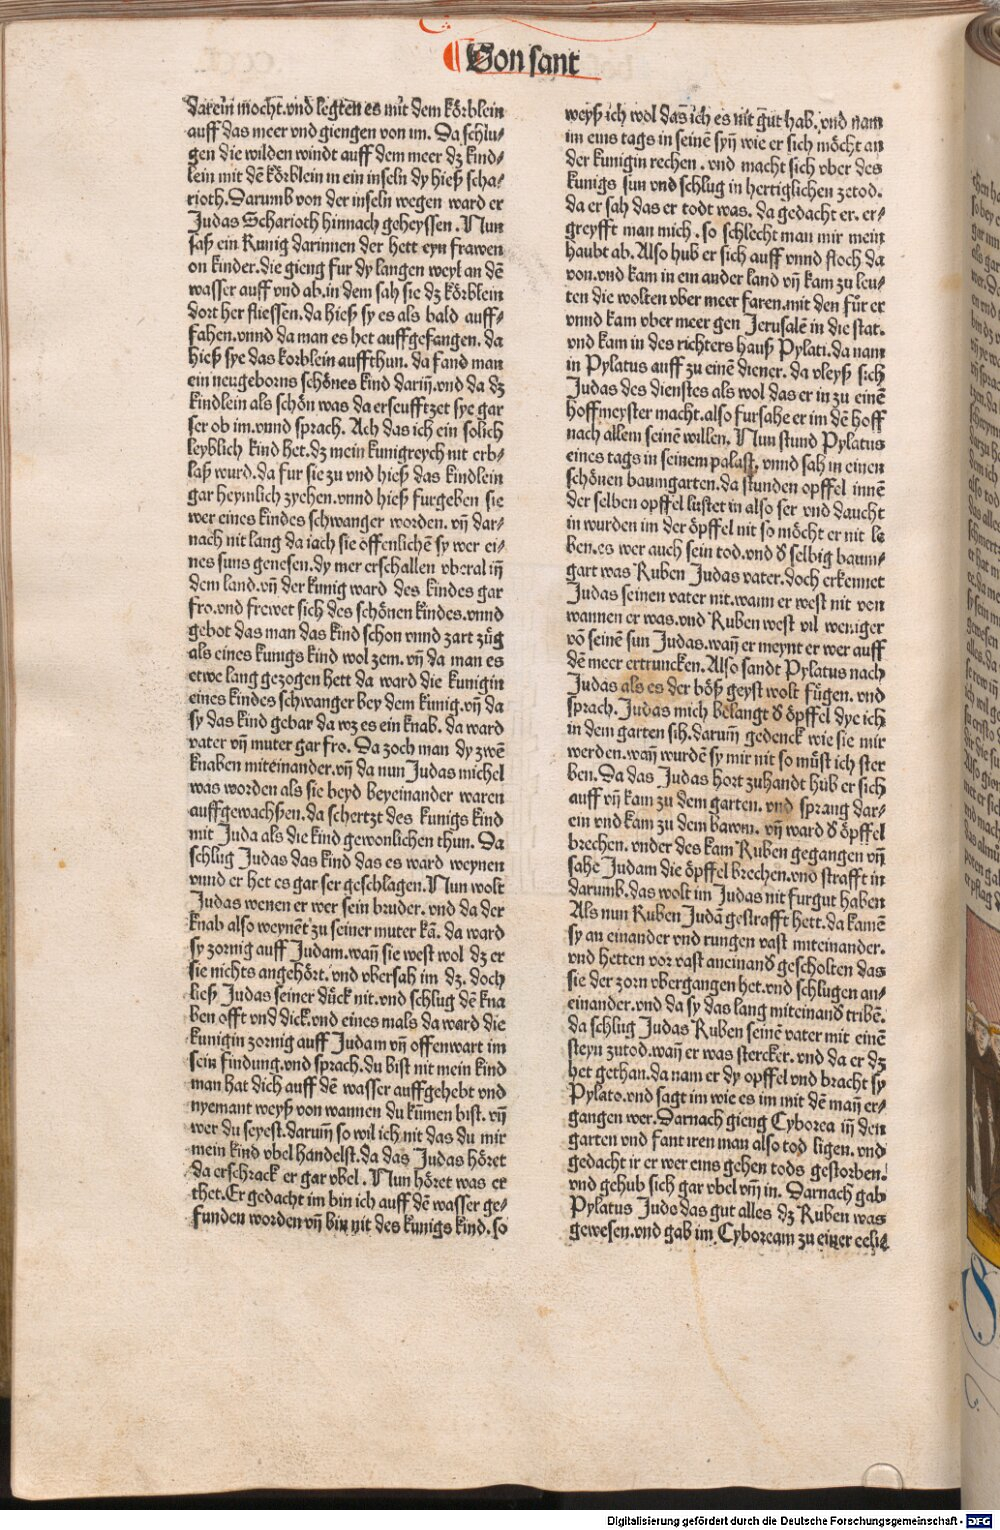 Von sant
darein mocht.vnd legten es mit dem körblein
auff das meer vnd giengen von im. Da schlu⸗
gen die wilden windt auff dem meer dz kind⸗
lein mit dē körblein in ein inseln dy hieß scha⸗
rioth.Darumb von der inseln wegen ward er
Judas Scharioth hinnach geheyssen. Nun
saß ein Kunig darinnen der hett eyn frawen
on kinder.die gieng fur dy langen weyl an dē
wasser auff vnd ab.in dem sah sie dz körblein
dort her fliessen.da hieß sy es als bald auff⸗
fahen.vnnd da man es het auffgefangen. da
hieß sye das korblein auffthun. da fand man
ein neugeborns schönes kind dariñ.vnd da dz
kindlein als schön was da erseufftzet sye gar
ser ob im.vnnd sprach. Ach das ich ein solich
leyblich kind het.dz mein kunigreych nit erb⸗
laß wurd.da fur sie zu vnd hieß das kindlein
gar heymlich zyehen.vnnd hieß furgeben sie
wer eines kindes schwanger worden. vñ dar⸗
nach nit lang da iach sie offenlichē sy wer ei⸗
nes suns genesen.dy mer erschallen vberal iñ
dem land.vñ der kunig ward des kindes gar
fro.vnd frewet sich des schönen kindes.vnnd
gebot das man das kind schon vnnd zart zůg
als eines kunigs kind wol zem. vñ da man es
etwe lang gezogen hett da ward die kunigin
eines kindes schwanger bey dem kunig.vñ da
sy das kind gebar da wz es ein knab. da ward
vater vñ muter gar fro. Da zoch man dy zwē
knaben miteinander.vñ da nun Judas michel
was worden als sie beyd beyeinander waren
auffgewachsen.da schertzt des kunigs kind
mit Juda als die kind gewonlichen thun. Da
schlug Judas das kind das es ward weynen
vnnd er het es gar ser geschlagen.Nun wolt
Judas wenen er wer sein bruder. vnd da der
knab also weynēt zu seiner muter kā. da ward
sy zornig auff Judam.wañ sie west wol dz er
sie nichts angehört.vnd vbersah im dz. doch
ließ Judas seiner dück nit.vnd schlug dē kna
ben offt vnd dick.vnd eines mals da ward die
kunigin zornig auff Judam vñ offenwart im
sein findung.vnd sprach.du bist nit mein kind
man hat dich auff dē wasser auffgehebt vnd
nyemant weyß von wannen du kūmen bist. vñ
wer du seyest.darum̄ so wil ich nit das du mir
mein kind vbel handelst.da das Judas höret
da erschrack er gar vbel. Nun höret was er
thet.Er gedacht im bin ich auff dē wasser ge⸗
funden worden vñ bin nit des kunigs kind.so
weyß ich wol das ich es nit gut hab. vnd nam
im eins tags in seinē syñ wie er sich möcht an
der kunigin rechen. vnd macht sich vber des
kunigs sun vnd schlug in hertiglichen zetod.
da er sah das er todt was. da gedacht er. er⸗
greyfft man mich. so schlecht man mir mein
haubt ab. Also hub er sich auff vnnd floch da
von.vnd kam in ein ander land vñ kam zu leu⸗
ten die wolten vber meer faren.mit den fůr er
vnnd kam vber meer gen Jerusalē in die stat.
vnd kam in des richters hauß Pylati.da nam
in Pylatus auff zu einē diener. da vleyß sich
Judas des dienstes als wol das er in zu einē
hoffmeyster macht.also fursahe er im dē hoff
nach allem seinē willen. Nun stund Pylatus
eines tags in seinem palast, vnnd sah in einen
schönen baumgarten.da stunden opffel innē
der selben opffel lustet in also ser vnd daucht
in wurden im der öpffel nit so möcht er nit le
ben.es wer auch sein tod.vnd ð selbig baum⸗
gart was Ruben Judas vater.doch erkennet
Judas seinen vater nit.wann er west nit von
wannen er was.vnd Ruben west vil weniger
vō seinē sun Judas.wañ er meynt er wer auff
dē meer ertruncken. Also sandt Pylatus nach
Judas als es der böß geyst wolt fügen. vnd
sprach. Judas mich belangt ð öpffel dye ich
in dem garten sih.darum̄ gedenck wie sie mir
werden.wañ wurdē sy mir nit so můst ich ster
ben. Da das Judas hort zuhandt hůb er sich
auff vñ kam zu dem garten. vnd sprang dar⸗
ein vnd kam zu dem bawm. vñ ward ð öpffel
brechen. vnder des kam Ruben gegangen vñ
sahe Judam die öpffel brechen.vnd strafft in
darumb.das wolt im Judas nit furgut haben
Als nun Ruben Judā gestrafft hett.da kamē
sy an einander vnd rungen vast miteinander.
vnd hetten vor vast aneinanð gescholten das
sie der zorn vbergangen het.vnd schlugen an⸗
einander.vnd da sy das lang miteinanð tribē.
da schlug Judas Ruben seinē vater mit einē
steyn zutod.wañ er was stercker. vnd da er dz
het gethan.da nam er dy opffel vnd bracht sy
Pylato.vnd sagt im wie es im mit dē mañ er⸗
gangen wer.Darnach gieng Cyborea iñ den
garten vnd fant iren man also tod ligen. vnd
gedacht ir er wer eins gehen tods gestorben.
vnd gehub sich gar vbel vm̄ in. Darnach gab
Pylatus Jude das gut alles dz Ruben was
gewesen.vnd gab im Cyboream zu einer eeli⸗
Digitalisierung gefördert durch die Deutsche Forschungsgemeinschaft - DFG